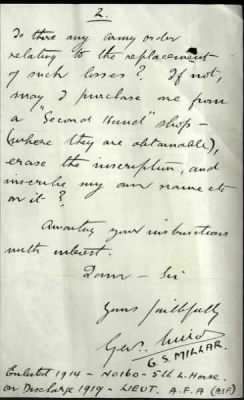 2.
Is there any army order
relating to the replacement
of such losses? If not,
may I purchase one from
a "Second Hand" shop -
(where they are obtainable),
erase the inscription, and
inscribe my own name etc
on it?
Awaiting your instructions
with interest.
I am - Sir
Yours faithfully
G.S. MILLAR.
Enlisted 1914 - No 160 - 5th L. Horse.
on Discharge 1919 - LIEUT. A.F.A (AIF)